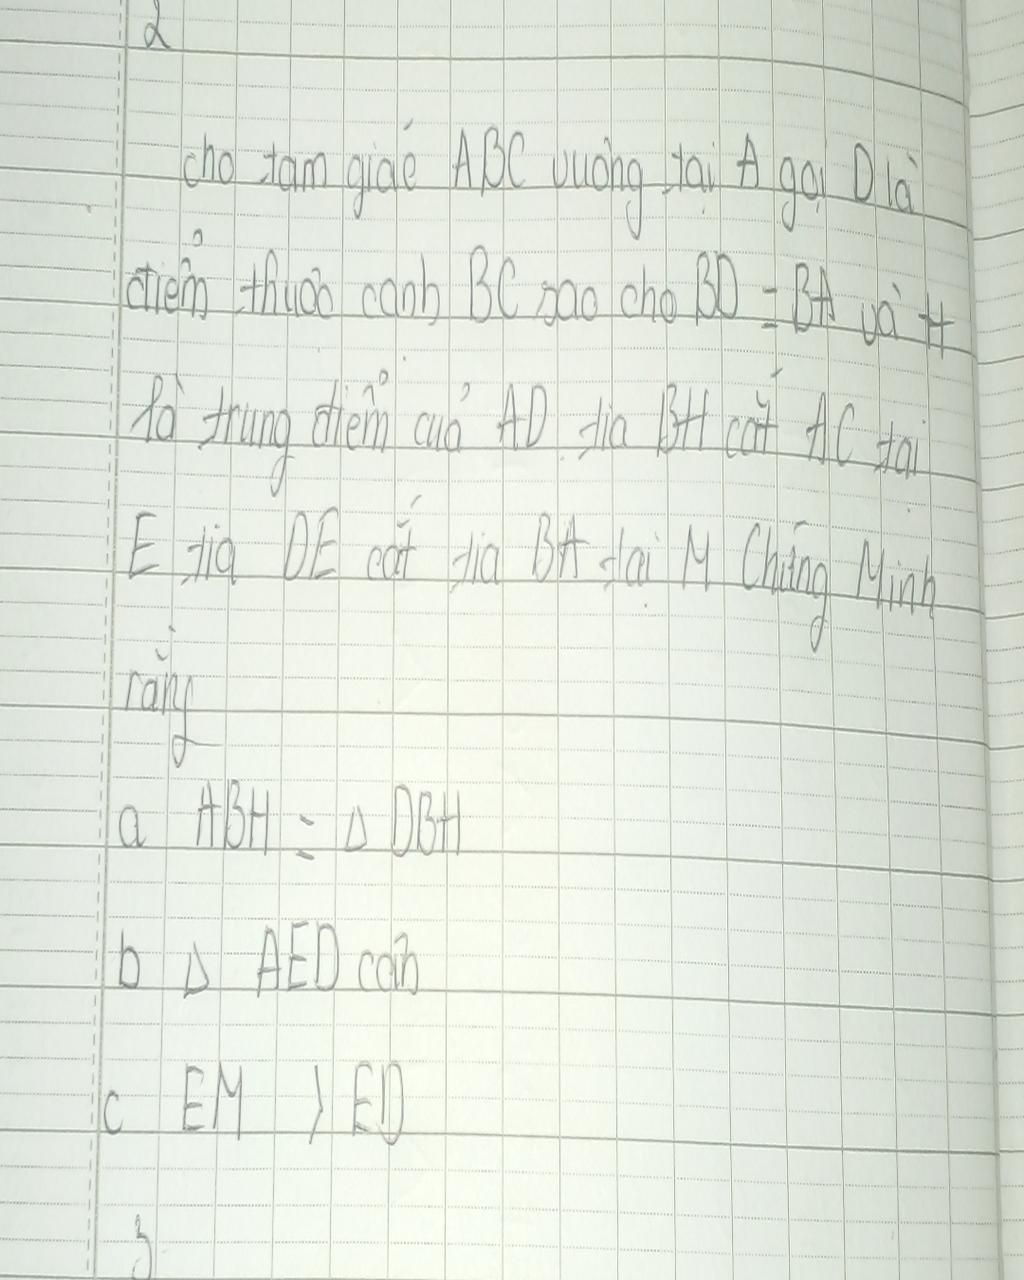 2
cho tam giác ABC vuông tại A gọi D là
điểm thuộc cạnh BC sao cho BD = BA và H
là trung điểm của AD tia BH cắt AC tại
E tia DE cắt tia BA tại M Chứng Minh
rằng
a ABH = Δ DBH
b Δ AED cân
c EM > ED
3